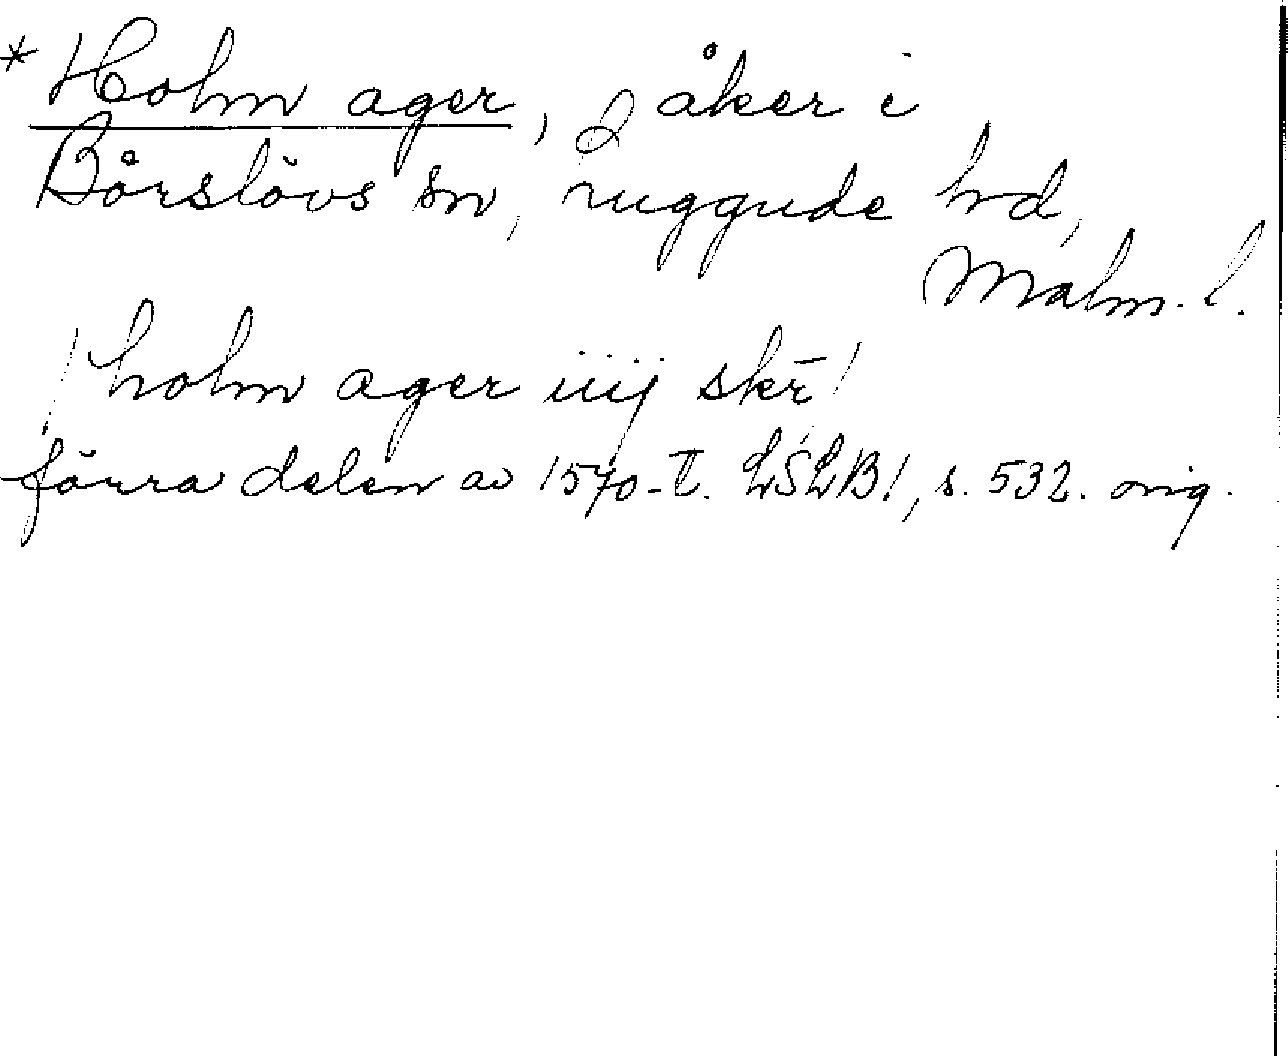 * Holm ager, åker i
Bårslövs sn, Luggude hd,
Malm. l.
/ holm ager iiij skr̄ /
förra delen av 1570-t. LSLB1, s. 532. orig.